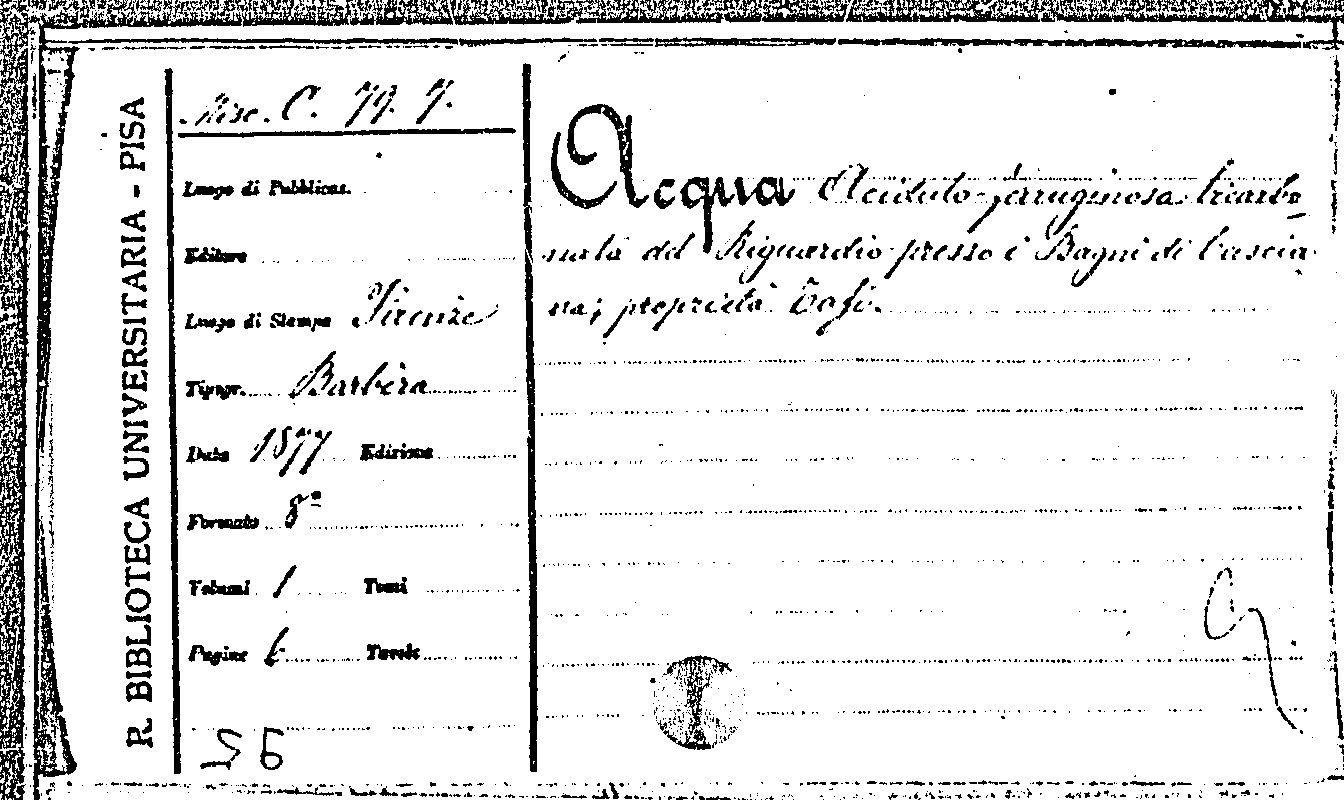 R. BIBLIOTECA UNIVERSITARIA - PISA
Misc. C. 79. 7.
Luogo di Pubblicaz.
Editore
Luogo di Stampa Firenze
Tipogr. Barbèra
Data 1877 Edizione
Formato 8°
Volumi 1 Tomi
Pagine Tavole
Acqua Acidulo-ferruginosa bicarbo
nata del Riguardio presso i Bagni di Cascia
na; proprietà Tafi.